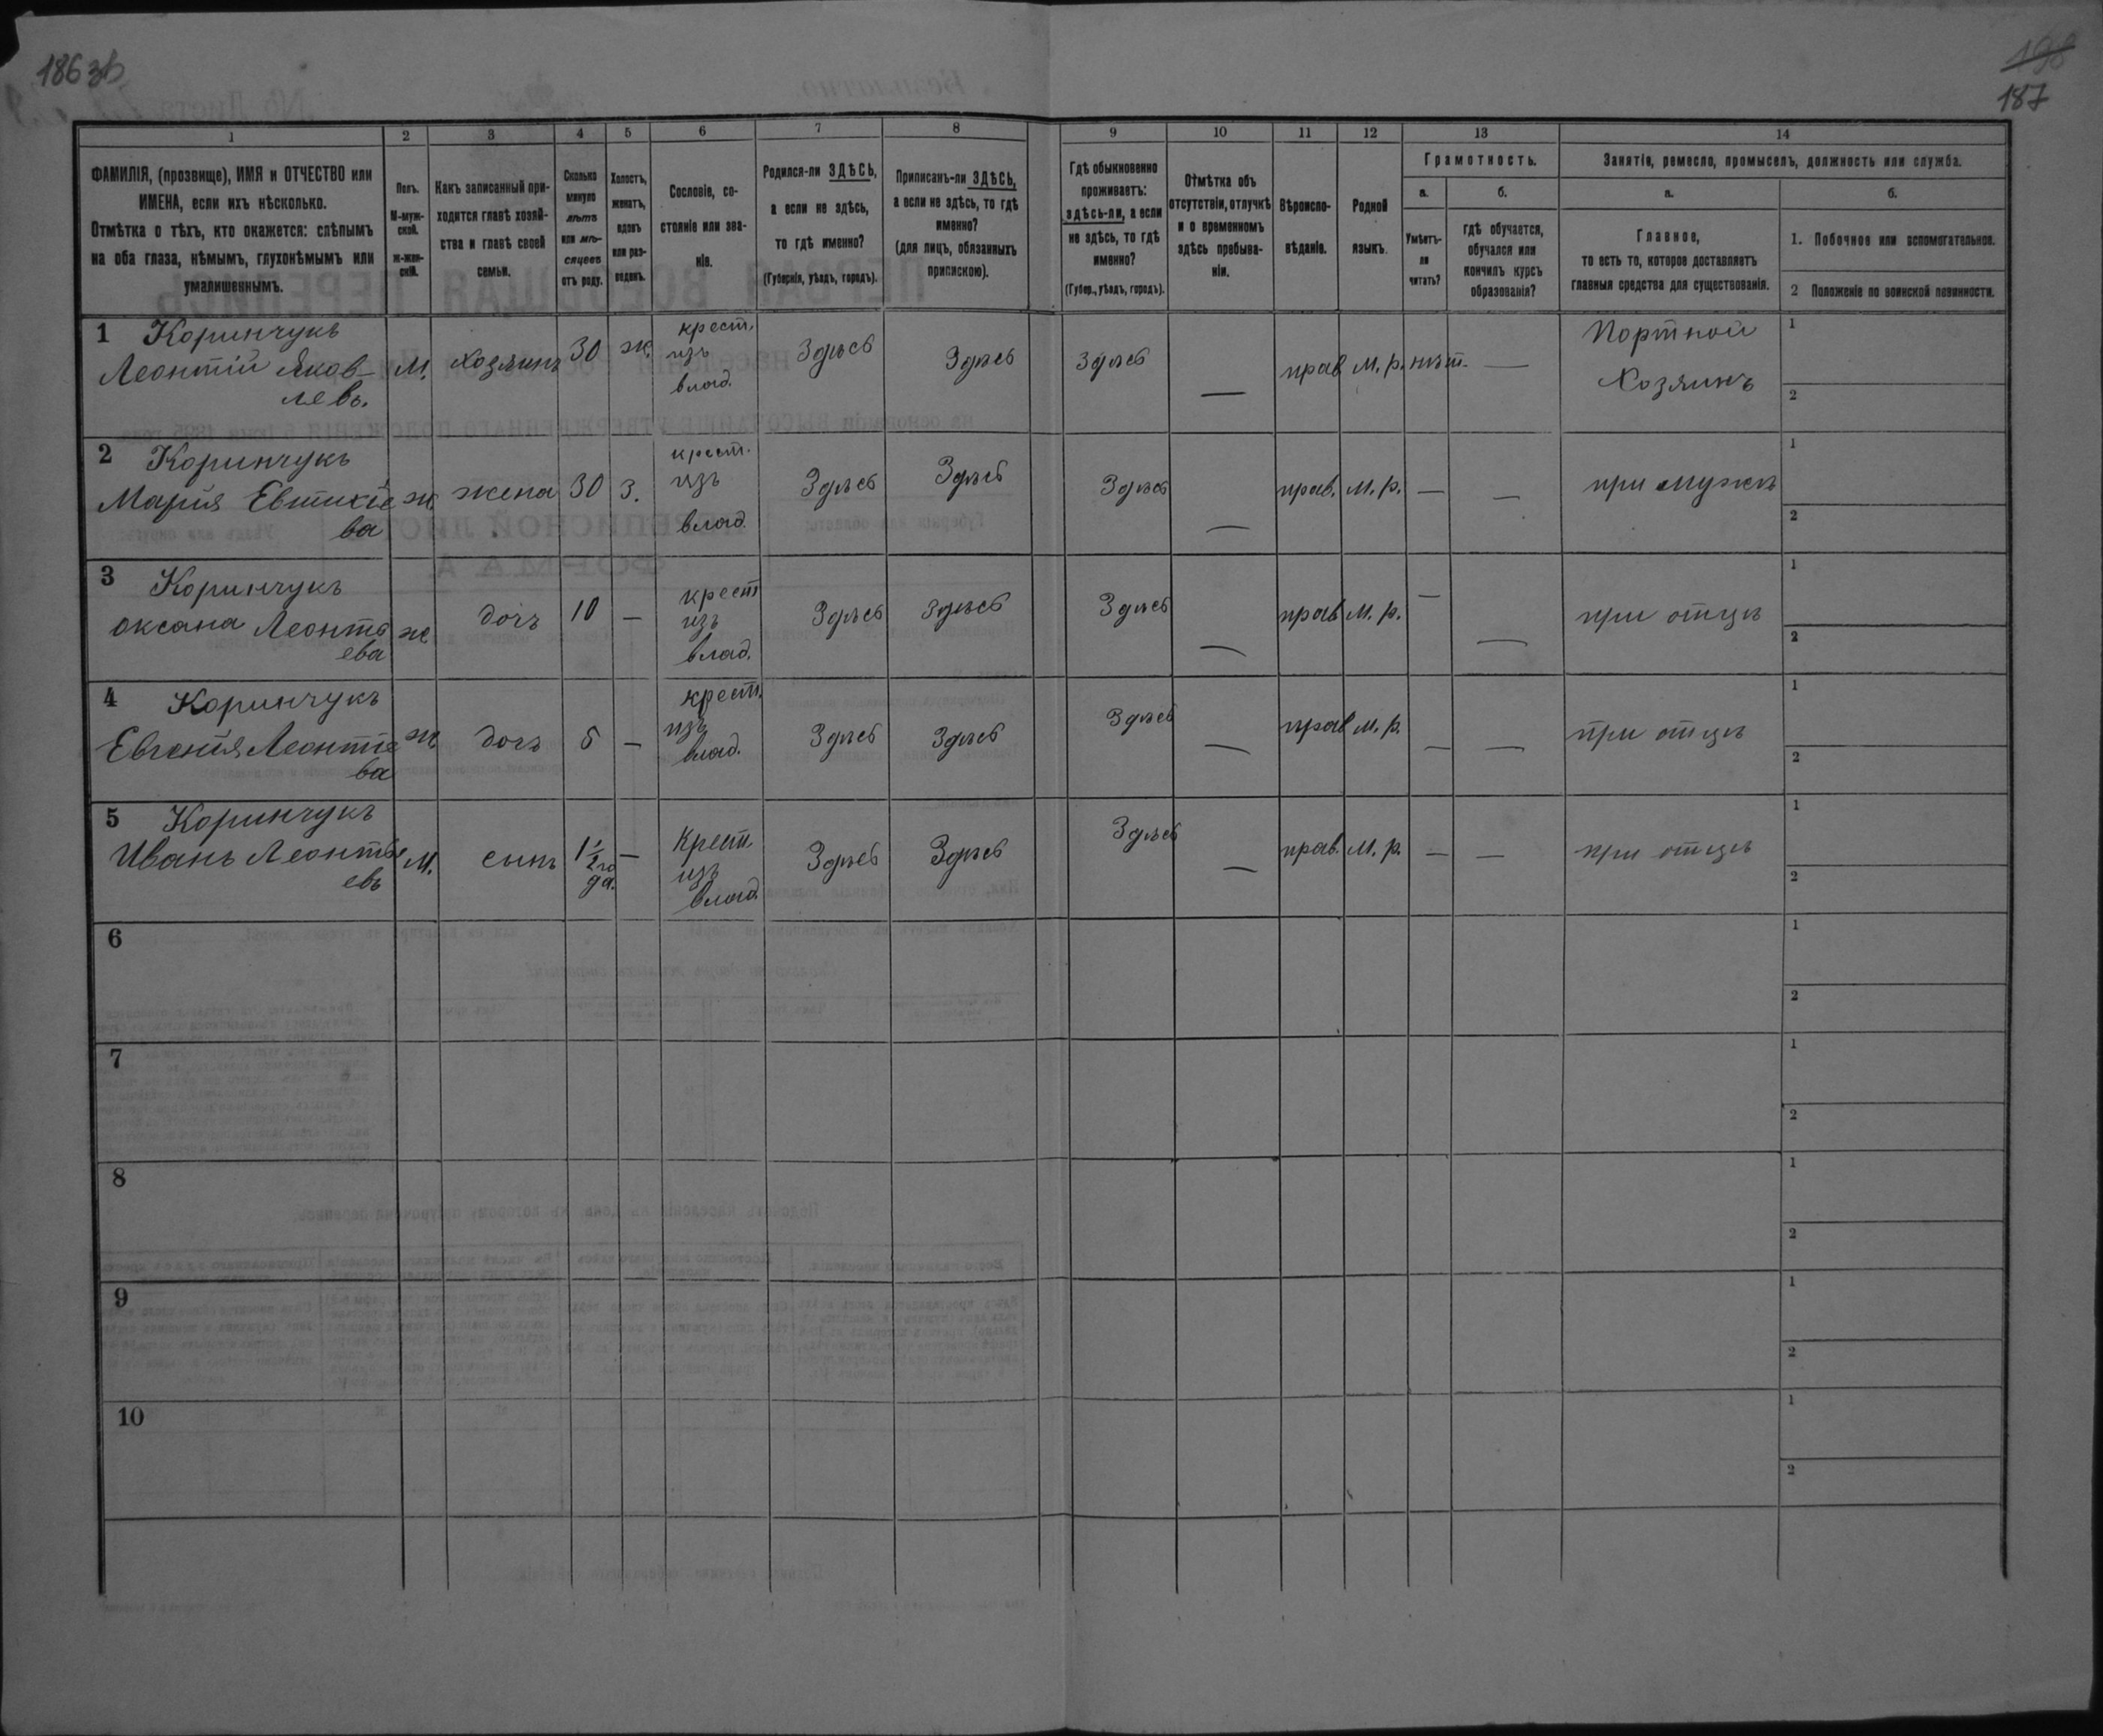 186 зв.
198
187
1
2
3
4
5
6
7
8
9
10
11
12
13
14
ФАМИЛІЯ, (прозвище), ИМЯ и ОТЧЕСТВО или
ИМЕНА, если ихъ нѣсколько.
Отмѣтка о тѣхъ, кто окажется: слѣпымъ
на оба глаза, нѣмымъ, глухонѣмымъ или
умалишеннымъ.
Полъ.
М-муж-
ской.
ж-жен-
скій.
Какъ записанный при-
ходится главѣ хозяй-
ства и главѣ своей
семьи.
Сколько
минуло
лѣтъ
или мѣ-
сяцевъ
отъ роду.
Холостъ,
женатъ,
вдовъ
или раз-
веденъ.
Сословіе, со-
стояніе или зва-
ніе.
Родился-ли ЗДѢСЬ,
а если не здѣсь,
то гдѣ именно?
(Губернія, уѣздъ, городъ).
Приписанъ-ли ЗДѢСЬ,
а если не здѣсь, то гдѣ
именно?
(для лицъ, обязанныхъ
припискою).
Гдѣ обыкновенно
проживаетъ:
здѣсь-ли, а если
не здѣсь, то гдѣ
именно?
(Губер., уѣздъ, городъ).
Отмѣтка объ
отсутствіи, отлучкѣ
и о временномъ
здѣсь пребыва-
ніи.
Вѣроиспо-
вѣданіе.
Родной
языкъ.
Грамотность.
а.
б.
Умѣетъ-
ли
читать?
гдѣ обучается,
обучался или
кончилъ курсъ
образованія?
Занятіе, ремесло, промыселъ, должность или служба.
а.
б.
Главное,
то есть то, которое доставляетъ
главныя средства для существованія.
1. Побочное или вспомогательное.
2 Положеніе по воинской повинности.
1 Коринчукъ
Леонтій Яков-
левъ.
М.
хозяинъ
30
ж.
крест.
изъ
влад.
Здѣсь
Здѣсь
Здѣсь
—
прав
м. р.
нѣт.
—
Портной
Хозяинъ
1
2
2 Коринчукъ
Марія Евтихіе
ва
ж.
жена
30
З.
крест.
изъ
влад.
Здѣсь
Здѣсь
Здѣсь
—
прав.
м. р.
—
—
при мужѣ
1
2
3 Коринчукъ
оксана Леонть
ева
ж
дочь
10
—
крест
изъ
влад.
Здѣсь
Здѣсь
Здѣсь
—
прав
м. р.
—
—
при отцѣ
1
2
4 Коринчукъ
Евгенія Леонтіе
ва
ж
дочь
5
—
крест.
изъ
влад.
Здѣсь
Здѣсь
Здѣсь
—
прав
м. р.
—
—
при отцѣ
1
2
5 Коринчукъ
Иванъ Леонть
евъ
М.
сынъ
1 1/2 го
да.
—
Крест.
изъ
влад.
Здѣсь
Здѣсь
Здѣсь
—
прав.
м. р.
—
—
при отцѣ
1
2
6
1
2
7
1
2
8
1
2
9
1
2
10
1
2